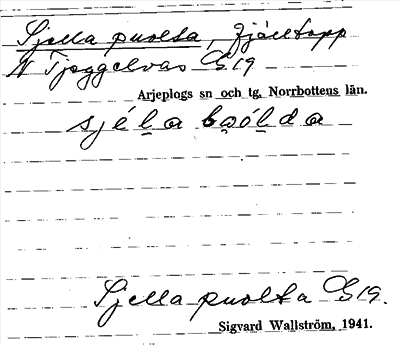 Sjella puolta, fjälltopp
N Tjeggelvas GS19
Arjeplogs sn och tg, Norrbottens län.
sjéla bǫólda
Sjella puolta GS19.
Sigvard Wallström, 1941.